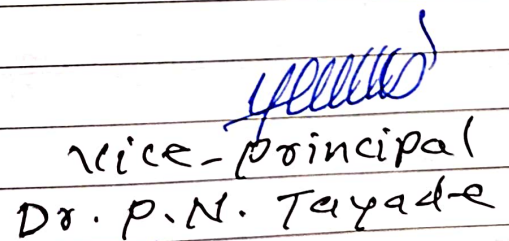 Vice-Principal
Dr. P.N. Tayade